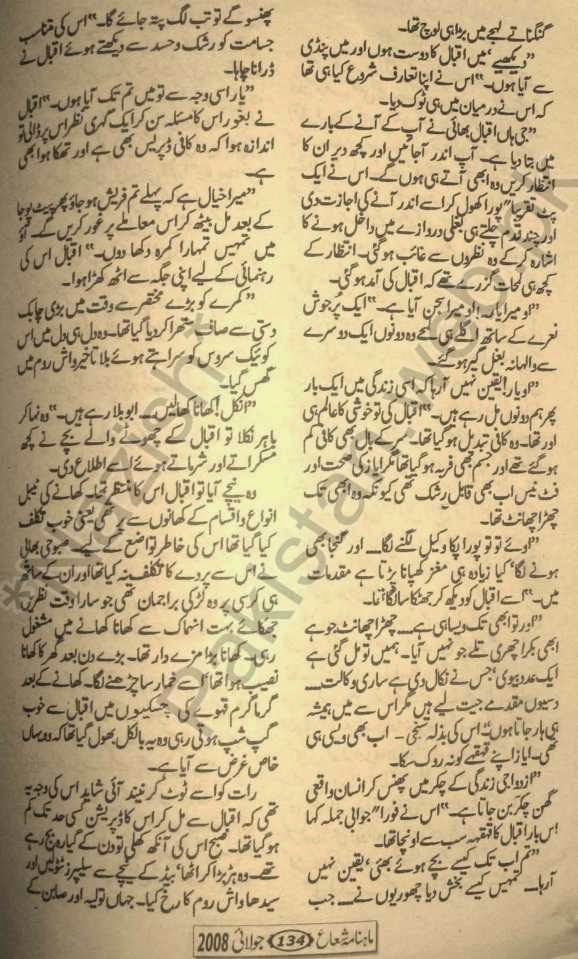 گنگناتے لہجے میں بڑا ہی لوچ تھا۔
”دیکھیے‘ میں اقبال کا دوست ہوں اور میں پنڈی
سے آیا ہوں۔“ اس نے اپنا تعارف شروع کیا ہی تھا
کہ اس نے درمیان میں ہی ٹوک دیا۔
”جی ہاں اقبال بھائی نے آپ کے آنے کے بارے
میں بتا دیا ہے۔ آپ اندر آجائیں اور کچھ دیر ان کا
انتظار کریں وہ ابھی آتے ہی ہوں گے۔ اس نے ایک
پٹ تقریباً“ پورا کھول کر اسے اندر آنے کی اجازت دی
اور چند قدم چلتے ہی بغلی دروازے میں داخل ہونے کا
اشارہ کر کے وہ نظروں سے غائب ہو گئی۔ انتظار کے
کچھ ہی لمحات گزرے تھے کہ اقبال کی آمد ہو گئی۔
”او میرا یار۔! او میرا سجن آیا ہے۔“ ایک پرجوش
نعرے کے ساتھ اگلے ہی لمحے وہ دونوں ایک دوسرے
سے والہانہ بغل گیر ہو گئے
”او یار! یقین نہیں آرہا کہ اسی زندگی میں ایک بار
پھر ہم دونوں مل رہے ہیں۔“ اقبال کی تو خوشی کا عالم ہی
اور تھا۔ وہ کافی تبدیل ہو گیا تھا۔ سر کے بال بھی کافی کم
ہو گئے تھے اور جسم بھی فربہ ہو گیا تھا مگر ایاز کی صحت اور
فٹ نیس اب بھی قابل رشک تھی کیونکہ وہ ابھی تک
چھڑا چھانٹ تھا۔
”اوئے تو تو پورا پکا وکیل لگنے لگا..... اور گنجا بھی
ہونے لگا‘ کیا زیادہ ہی مغز کھپانا پڑتا ہے مقدمات
میں۔“ اسے اقبال کو دیکھ کر جھٹکا سا لگا تھا۔
”اور تو ابھی تک ویسا ہی ہے..... چھڑا چھانٹ جو ہے
ابھی بکرا چھری تلے جو نہیں آیا۔ ہمیں تو مل گئی ہے
ایک عدد بیوی‘ جس نے نکال دی ہے ساری وکالت.....
دسیوں مقدمے جیت لیے ہیں مگر اس سے میں ہمیشہ
ہی ہار جاتا ہوں“ اس کی بذلہ سنجی۔ اب بھی ویسی ہی
تھی۔ ایاز اپنے قہقہے کو نہ روک سکا۔
”ازدواجی زندگی کے چکر میں پھنس کر انسان واقعی
گھن چکر بن جاتا ہے۔“ اس نے فورا“ جوابی جملہ کہا
اس بار اقبال کا قہقہہ سب سے اونچا تھا۔
”تم اب تک کیسے بچے ہوئے بھئی‘ یقین نہیں
آرہا..... تمہیں کیسے بخش دیا چھوریوں نے.... جب
پھنسو گے تو تب لگ پتہ جائے گا۔“ اس کی متناسب
جسامت کو رشک و حسد سے دیکھتے ہوئے اقبال نے
ڈرانا چاہا۔
”یار اسی وجہ سے تو میں تم تک آیا ہوں۔“ اقبال
نے بغور اس کا مسئلہ سن کر ایک گہری نظر اس پر ڈالی تو
اندازہ ہوا کہ وہ کافی ڈپریس بھی ہے اور تھکا ہوا بھی
ہے۔
”میرا خیال ہے کہ پہلے تم فریش ہو جاؤ پھر پیٹ پوجا
کے بعد مل بیٹھ کر اس معاملے پر غور کریں گے۔ آؤ
میں تمہیں تمہارا کمرہ دکھا دوں۔“ اقبال اس کی
رہنمائی کے لیے اپنی جگہ سے اٹھ کھڑا ہوا۔
”کمرے کو بڑے مختصر سے وقت میں بڑی چابک
دستی سے صاف ستھرا کر دیا گیا تھا۔ وہ دل ہی دل میں اس
کوئیک سروس کو سراہتے ہوئے بلا تاخیر واش روم میں
گھس گیا۔
”انکل! کھانا کھالیں... ابو بلا رہے ہیں۔“ وہ نہا کر
باہر نکلا تو اقبال کے چھوٹے والے بچے نے کچھ
مسکراتے اور شرماتے ہوئے اسے اطلاع دی۔
وہ نیچے آیا تو اقبال اس کا منتظر تھا۔ کھانے کی ٹیبل
انواع و اقسام کے کھانوں سے پر تھی یعنی خوب تکلف
کیا گیا تھا اس کی خاطر تواضع کے لیے۔ صبوحی بھابی
نے اس سے پردے کا تکلف نہ کیا تھا اور ان کے ساتھ
ہی کرسی پر وہ لڑکی براجمان تھی جو سارا وقت نظریں
جھکائے بہت انہماک سے کھانا کھانے میں مشغول
رہی۔ کھانا بڑا مزے دار تھا۔ بڑے دن بعد گھر کا کھانا
نصیب ہوا تھا‘ اسے خمار سا چڑھنے لگا۔ کھانے کے بعد
گرما گرم قہوے کی چسکیوں میں اقبال سے خوب
گپ شپ ہوتی رہی وہ یہ بالکل بھول گیا تھا کہ وہ یہاں
خاص غرض سے آیا ہے۔
رات کو اسے ٹوٹ کر نیند آئی شاید اس کی وجہ یہ
تھی کہ اقبال سے مل کر اس کا ڈپریشن کسی حد تک کم
ہو گیا تھا۔ صبح اس کی آنکھ کھلی تو دن کے گیارہ بج رہے
تھے۔ وہ ہڑبڑا کر اٹھا‘ بیڈ کے نیچے سے سلیپرز ٹٹولیں اور
سیدھا واش روم کا رخ کیا۔ جہاں تولیہ اور صابن کے
ماہنامہ شعاع 134 جولائی 2008